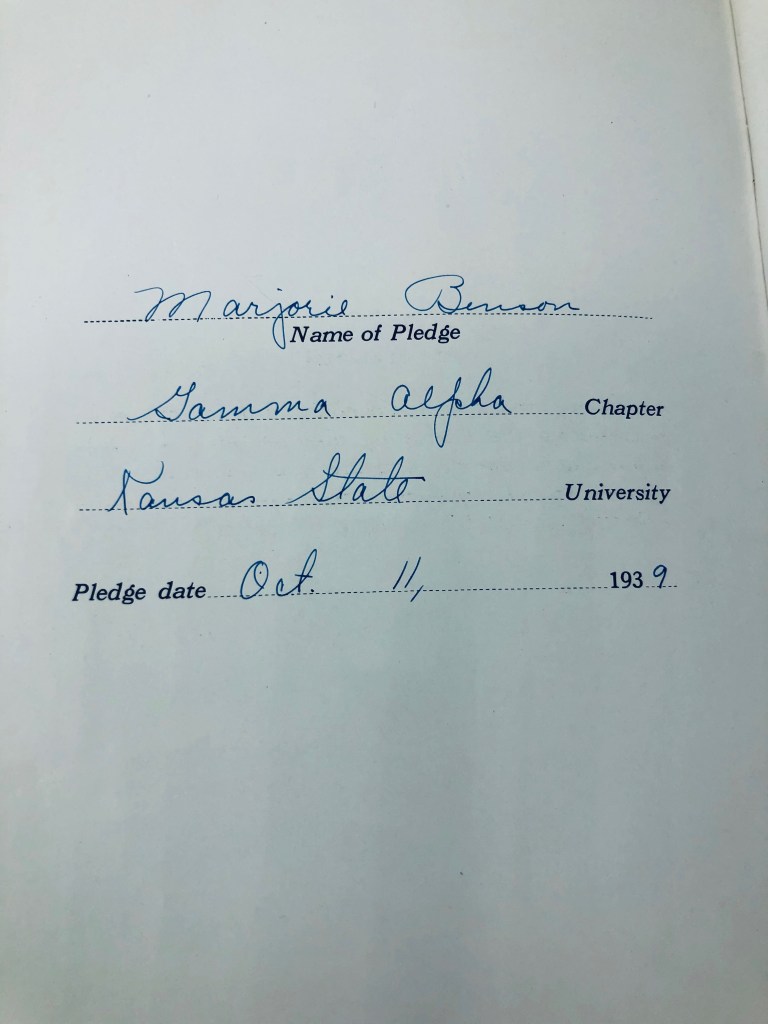 Marjorie Benson
Name of Pledge
Gamma Alpha Chapter
Kansas State University
Pledge date Oct. 11, 1939